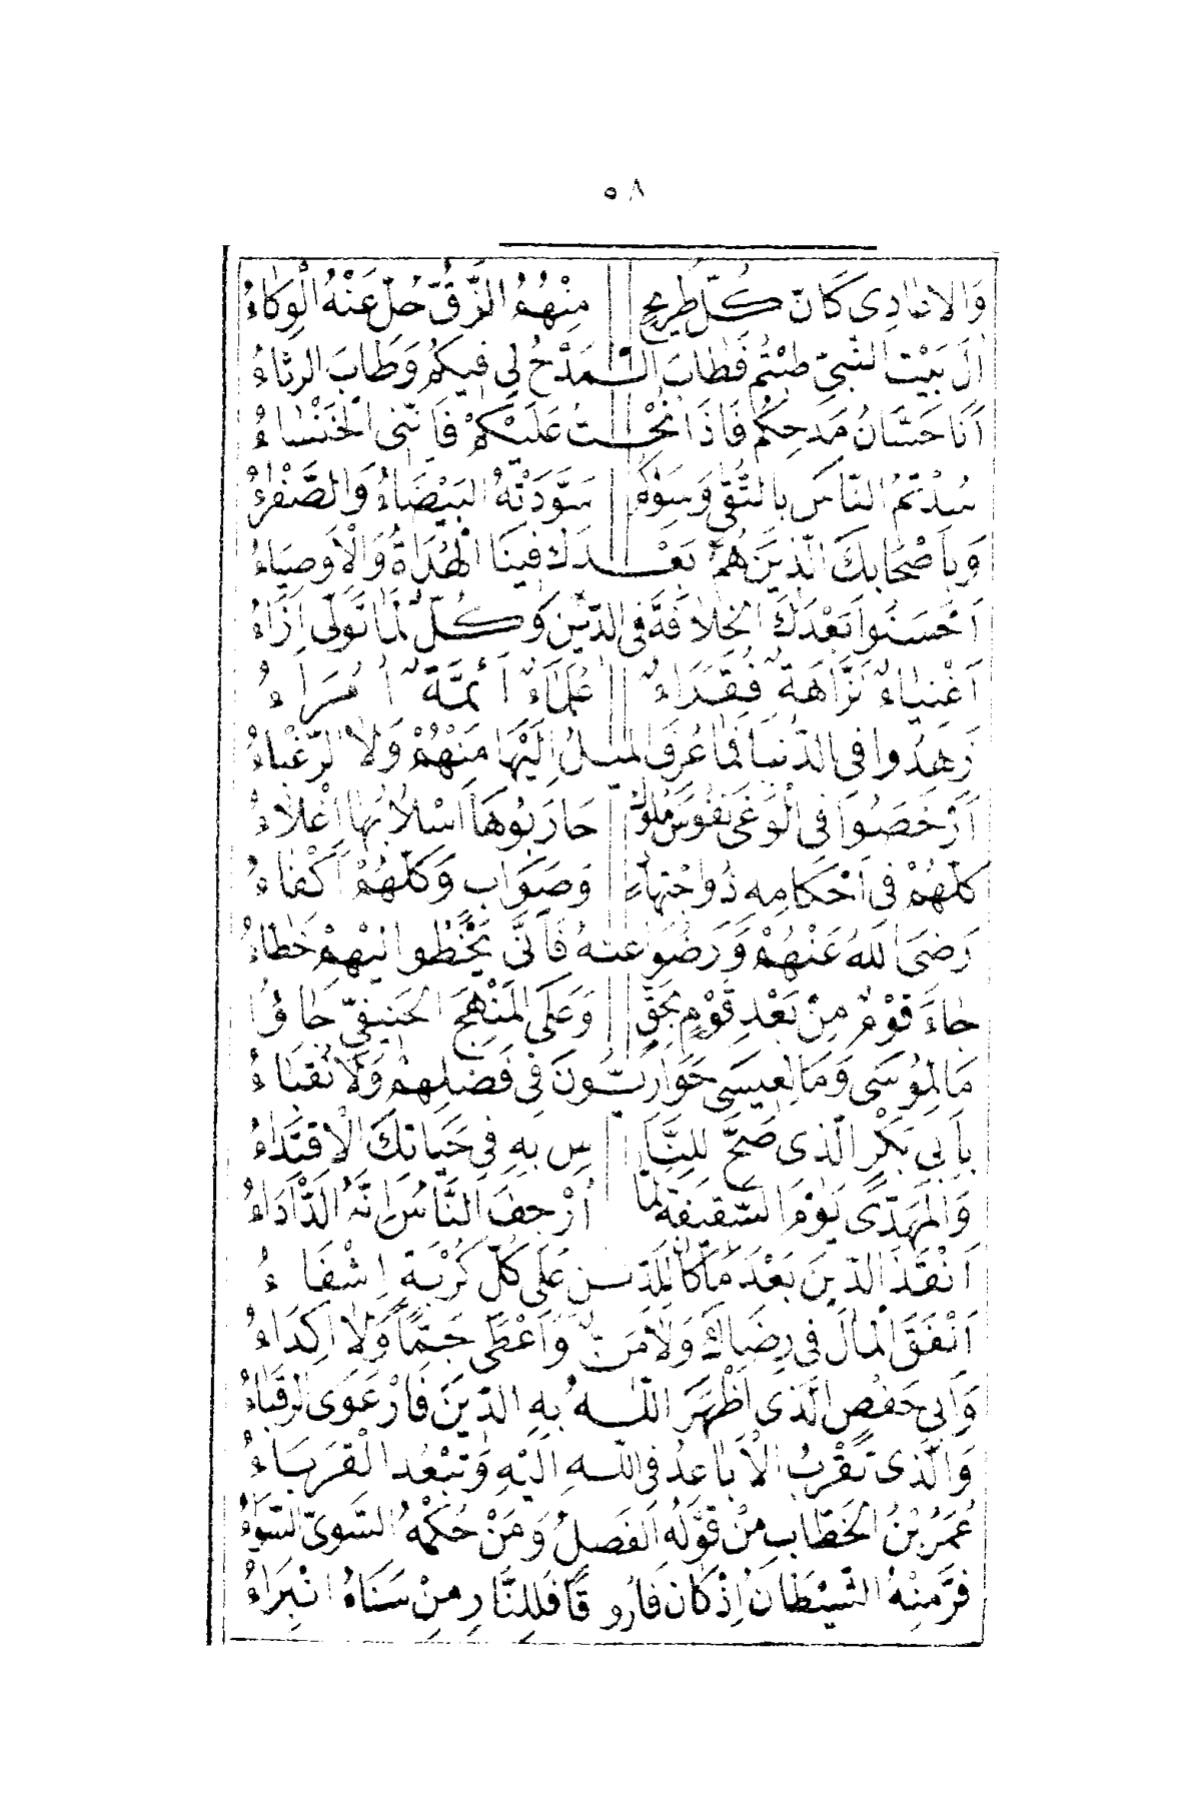 ٥٨
وَالاَعَادِى كَانَ كُلَّ طَرِيحٍ مِنْهُمُ الزِّقُّ حُلَّ عَنْهُ الْوِكَاءُ
اٰلَ بَيْتِ النَّبِىِّ طِبْتُمْ فَطَابَ الـْمَدْحُ لِى فِيكُمْ وَطَابَ الرِّثَاءُ
اَنَا حَسَّانُ مَدْحِكُمْ فَاِذَا نُحْـتُ عَلَيْكُمْ فَاِنَّنِى الْخَنْسَاءُ
سُدْتُمُ النَّاسَ بِالتُّقٰى وَسِوَاكُمْ سَوَّدَتْهُ الْبَيْضَاءُ وَالصَّفْرَاءُ
وَبِاَصْحَابِكَ الَّذِينَ هُمُ بَعْـدَكَ فِينَا الْهُدَاةُ وَالْاَوْصِيَاءُ
اَحْسَنُوا بَعْدَكَ الْخِلَافَةَ فِى الدِّيْنِ وَكُلٌّ لِمَا تَوَلَّى اِزَاءُ
اَغْنِيَاءٌ نَزَاهَةً فُقَرَاءٌ عُلَمَاءٌ اَئِمَّةٌ اُمَرَاءُ
زَهِدُوا فِى الدُّنْيَا فَمَا عُرِفَ الْمَيْـلُ اِلَيْهَا مِنْهُمْ وَلَا الرَّغْبَاءُ
اَرْخَصُوا فِى الْوَغَى نُفُوسَ مُلُوكٍ حَارَبُوهَا اَسْلَابُهَا اِغْلَاءُ
كُلُّهُمْ فِى اَحْكَامِهِ ذُو اجْتِهَادٍ وَصَوَابٍ وَكُلُّهُمْ اَكْفَاءُ
رَضِىَ اللهُ عَنْهُمْ وَرَضُوا عَنْهُ فَاَنَّى يَخْطُو اِلَيْهِمْ خَطَاءُ
جَاءَ قَوْمٌ مِنْ بَعْدِ قَوْمٍ بِحَقٍّ وَعَلَى الْمَنْهَجِ الْحَنِيفِىِّ جَاؤُا
مَا لِمُوسَى وَمَا لِعِيسَى حَوَارِيُّونَ فِى فَضْلِهِمْ وَلَا نُقَبَاءُ
بِاَبِى بَكْرٍ الَّذِى صَحَّ لِلنَّا سِ بِهِ فِى حَيَاتِكَ الْاِقْتِدَاءُ
وَالْمُهَدِّى يَوْمَ السَّقِيفَةِ لَمَّا اَرْجَفَ النَّاسُ اِنَّهُ الدَّأْدَاءُ
اَنْقَذَ الدِّينَ بَعْدَ مَا كَانَ لِلدِّيـنِ عَلَى كُلِّ كُرْبَةٍ اِشْفَاءُ
اَنْفَقَ الْمَالَ فِى رِضَاكَ وَلَا مَنٌّ وَاَعْطَى جَمًّا وَلَا اِكْدَاءُ
وَاَبِى حَفْصٍ الَّذِى اَظْهَرَ اللهُ بِهِ الدِّينَ فَارْعَوَى الرُّقَبَاءُ
وَالَّذِى تَقْرُبُ الْاَبَاعِدُ فِى اللهِ اِلَيْهِ وَتَبْعُدُ الْقُرَبَاءُ
عُمَرُ بْنُ الْخَطَّابِ مَنْ قَوْلُهُ الْفَصْلُ وَمَنْ حُكْمُهُ السَّوِىُّ السَّوَاءُ
فَرَّ مِنْهُ الشَّيْطَانُ اِذْ كَانَ فَارُو قًا فَلِلنَّارِ مِنْ سَنَاهُ انْبِرَاءُ